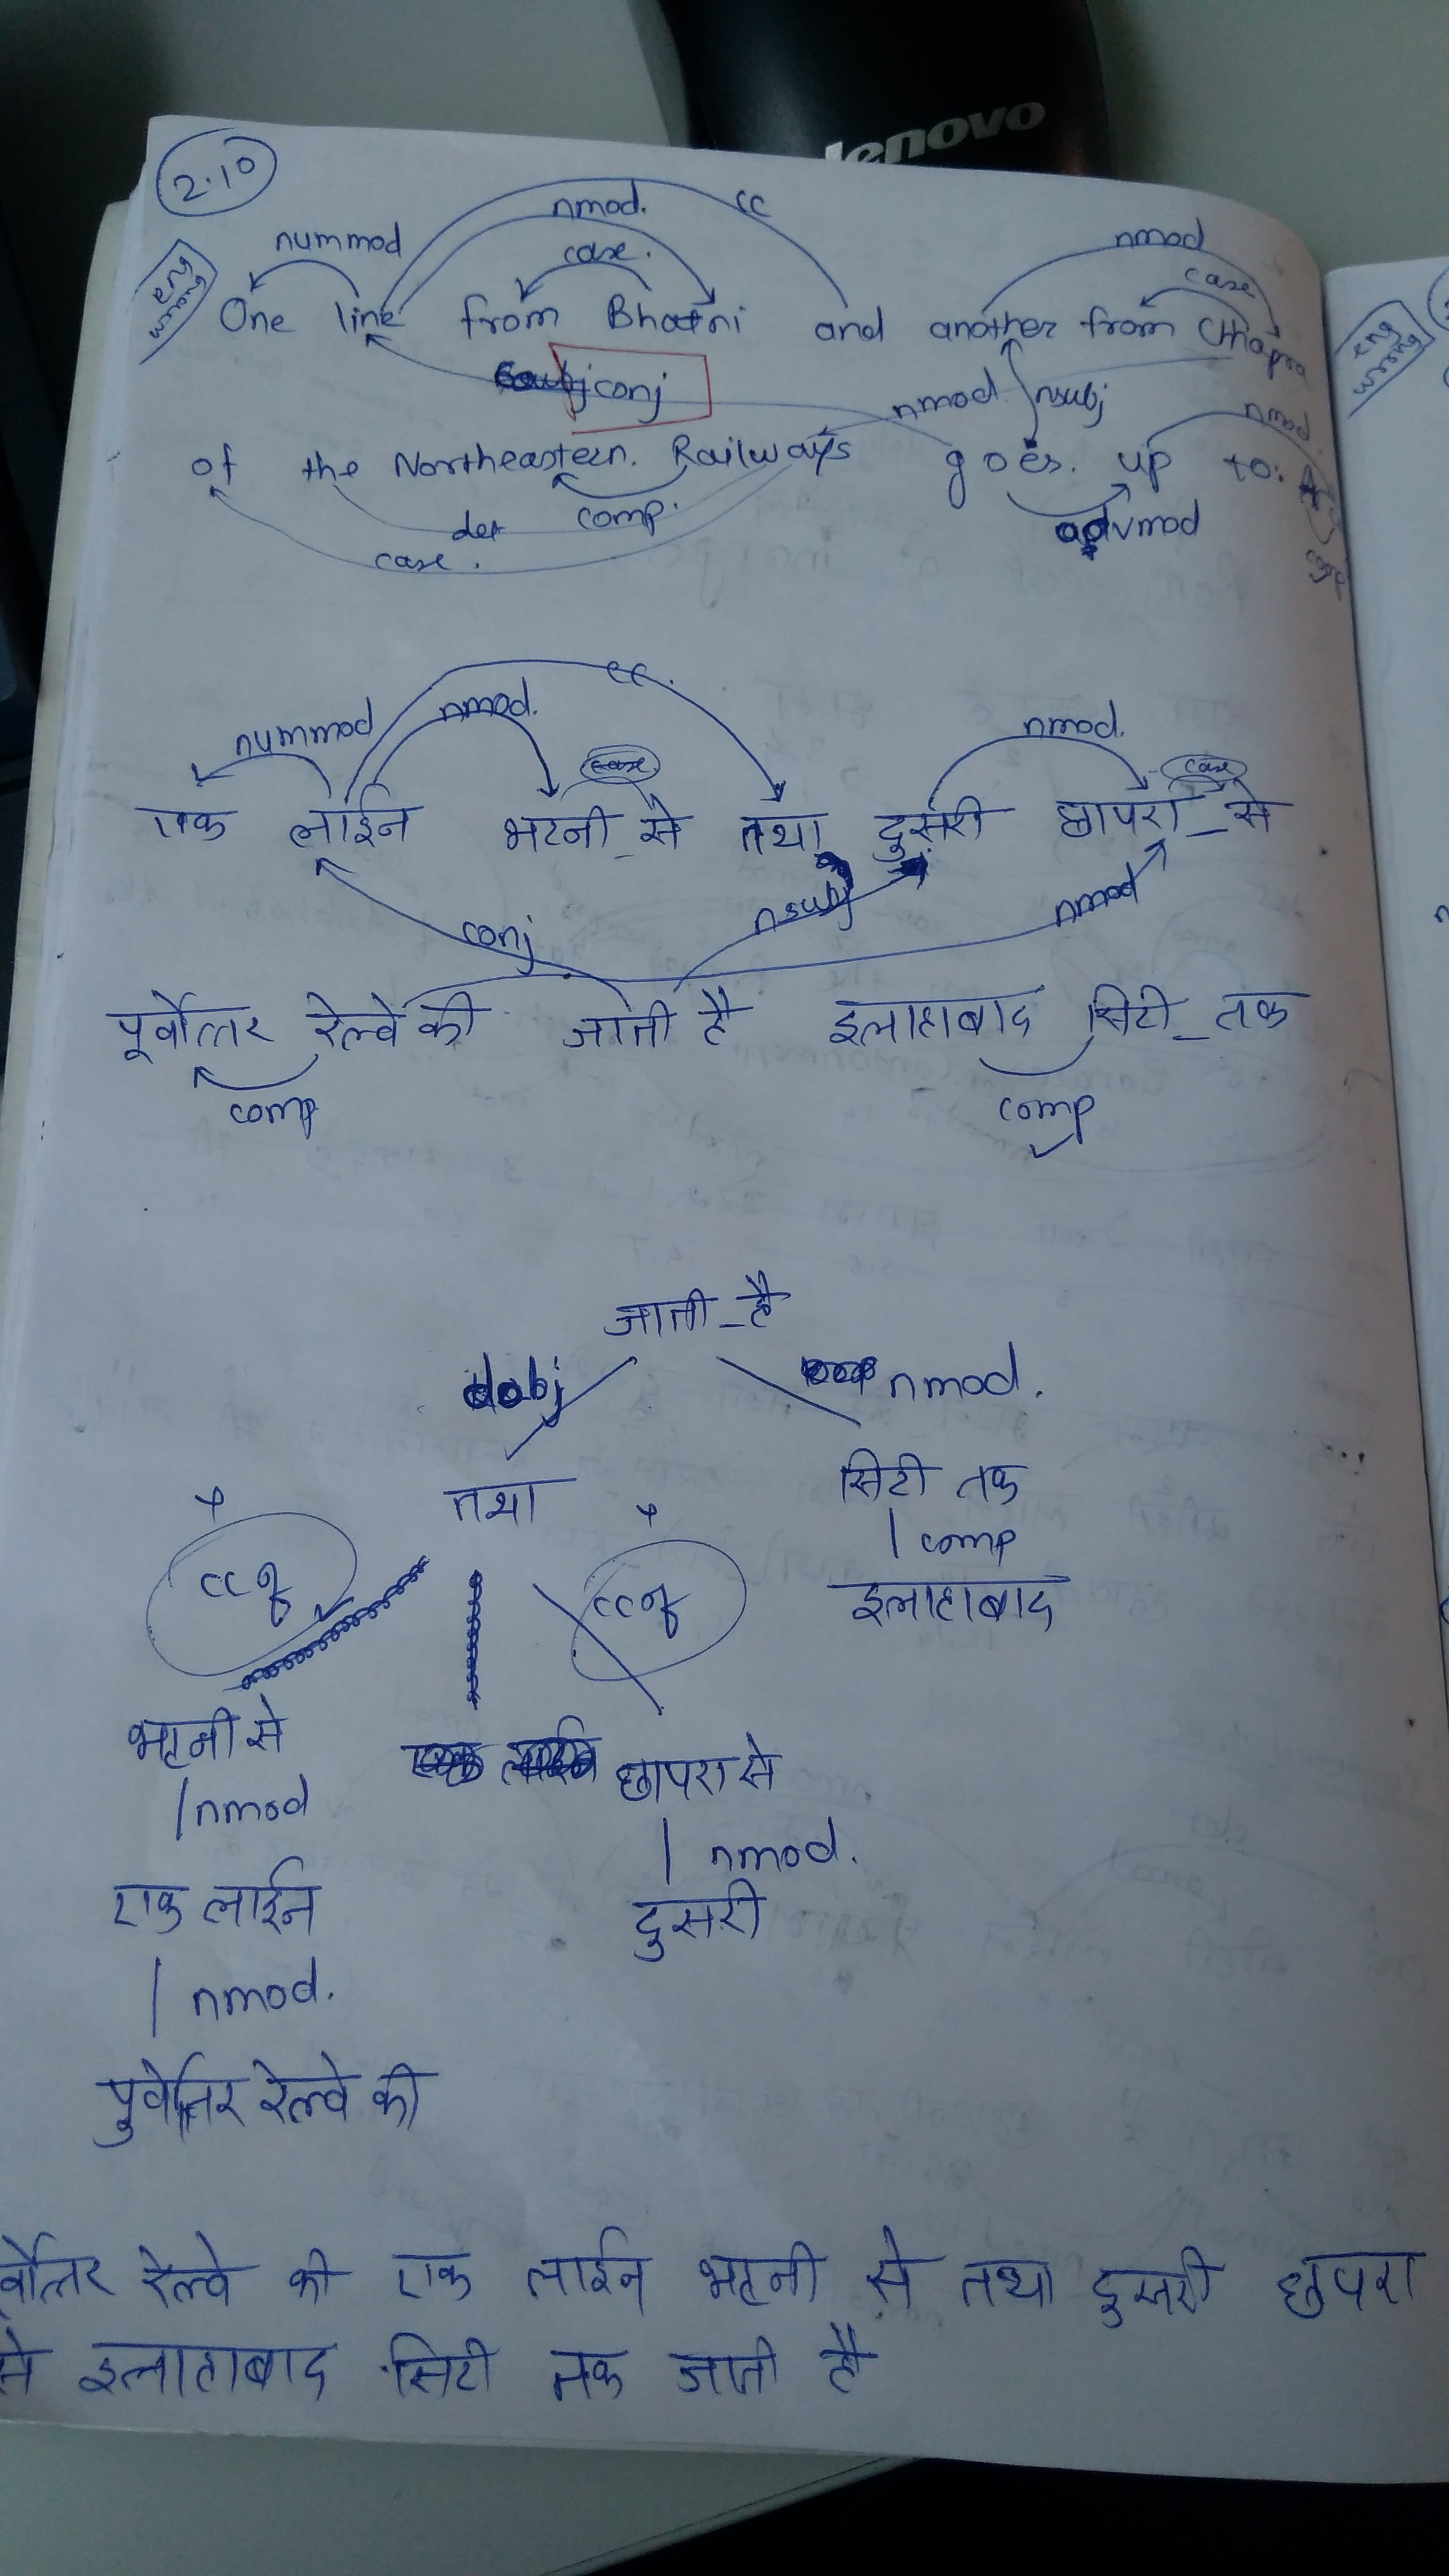 lenovo
2.10
nmod. cc
nummod case. nmod
case
One line from Bhatni and another from Chhapra
conj nmod nsubj nmod
of the Northeastern. Railways goes. up to.
det comp. advmod
case.
cc.
nummod nmod. case nmod. case
एक लाईन भटनी_से तथा दुसरी छापरा_से
conj nsubj nmod
पूर्वोत्तर रेल्वे की जाती है इलाहाबाद सिटी_तक
comp comp
जाती_है
dobj nmod.
तथा सिटी तक
comp
इलाहाबाद
ccof ccof
भटनी से छापरा से
nmod nmod.
एक लाईन दुसरी
nmod.
पुर्वोत्तर रेल्वे की
र्वोत्तर रेल्वे की एक लाईन भटनी से तथा दुसरी छपरा
से इलाहाबाद सिटी तक जाती है